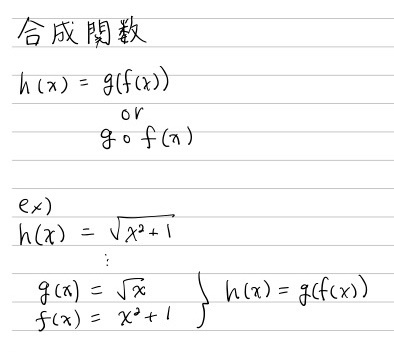 合成関数
h(x) = g(f(x))
or
g∘f(x)
ex)
h(x) = √(x²+1)
⋮
g(x) = √x
f(x) = x²+1 } h(x) = g(f(x))